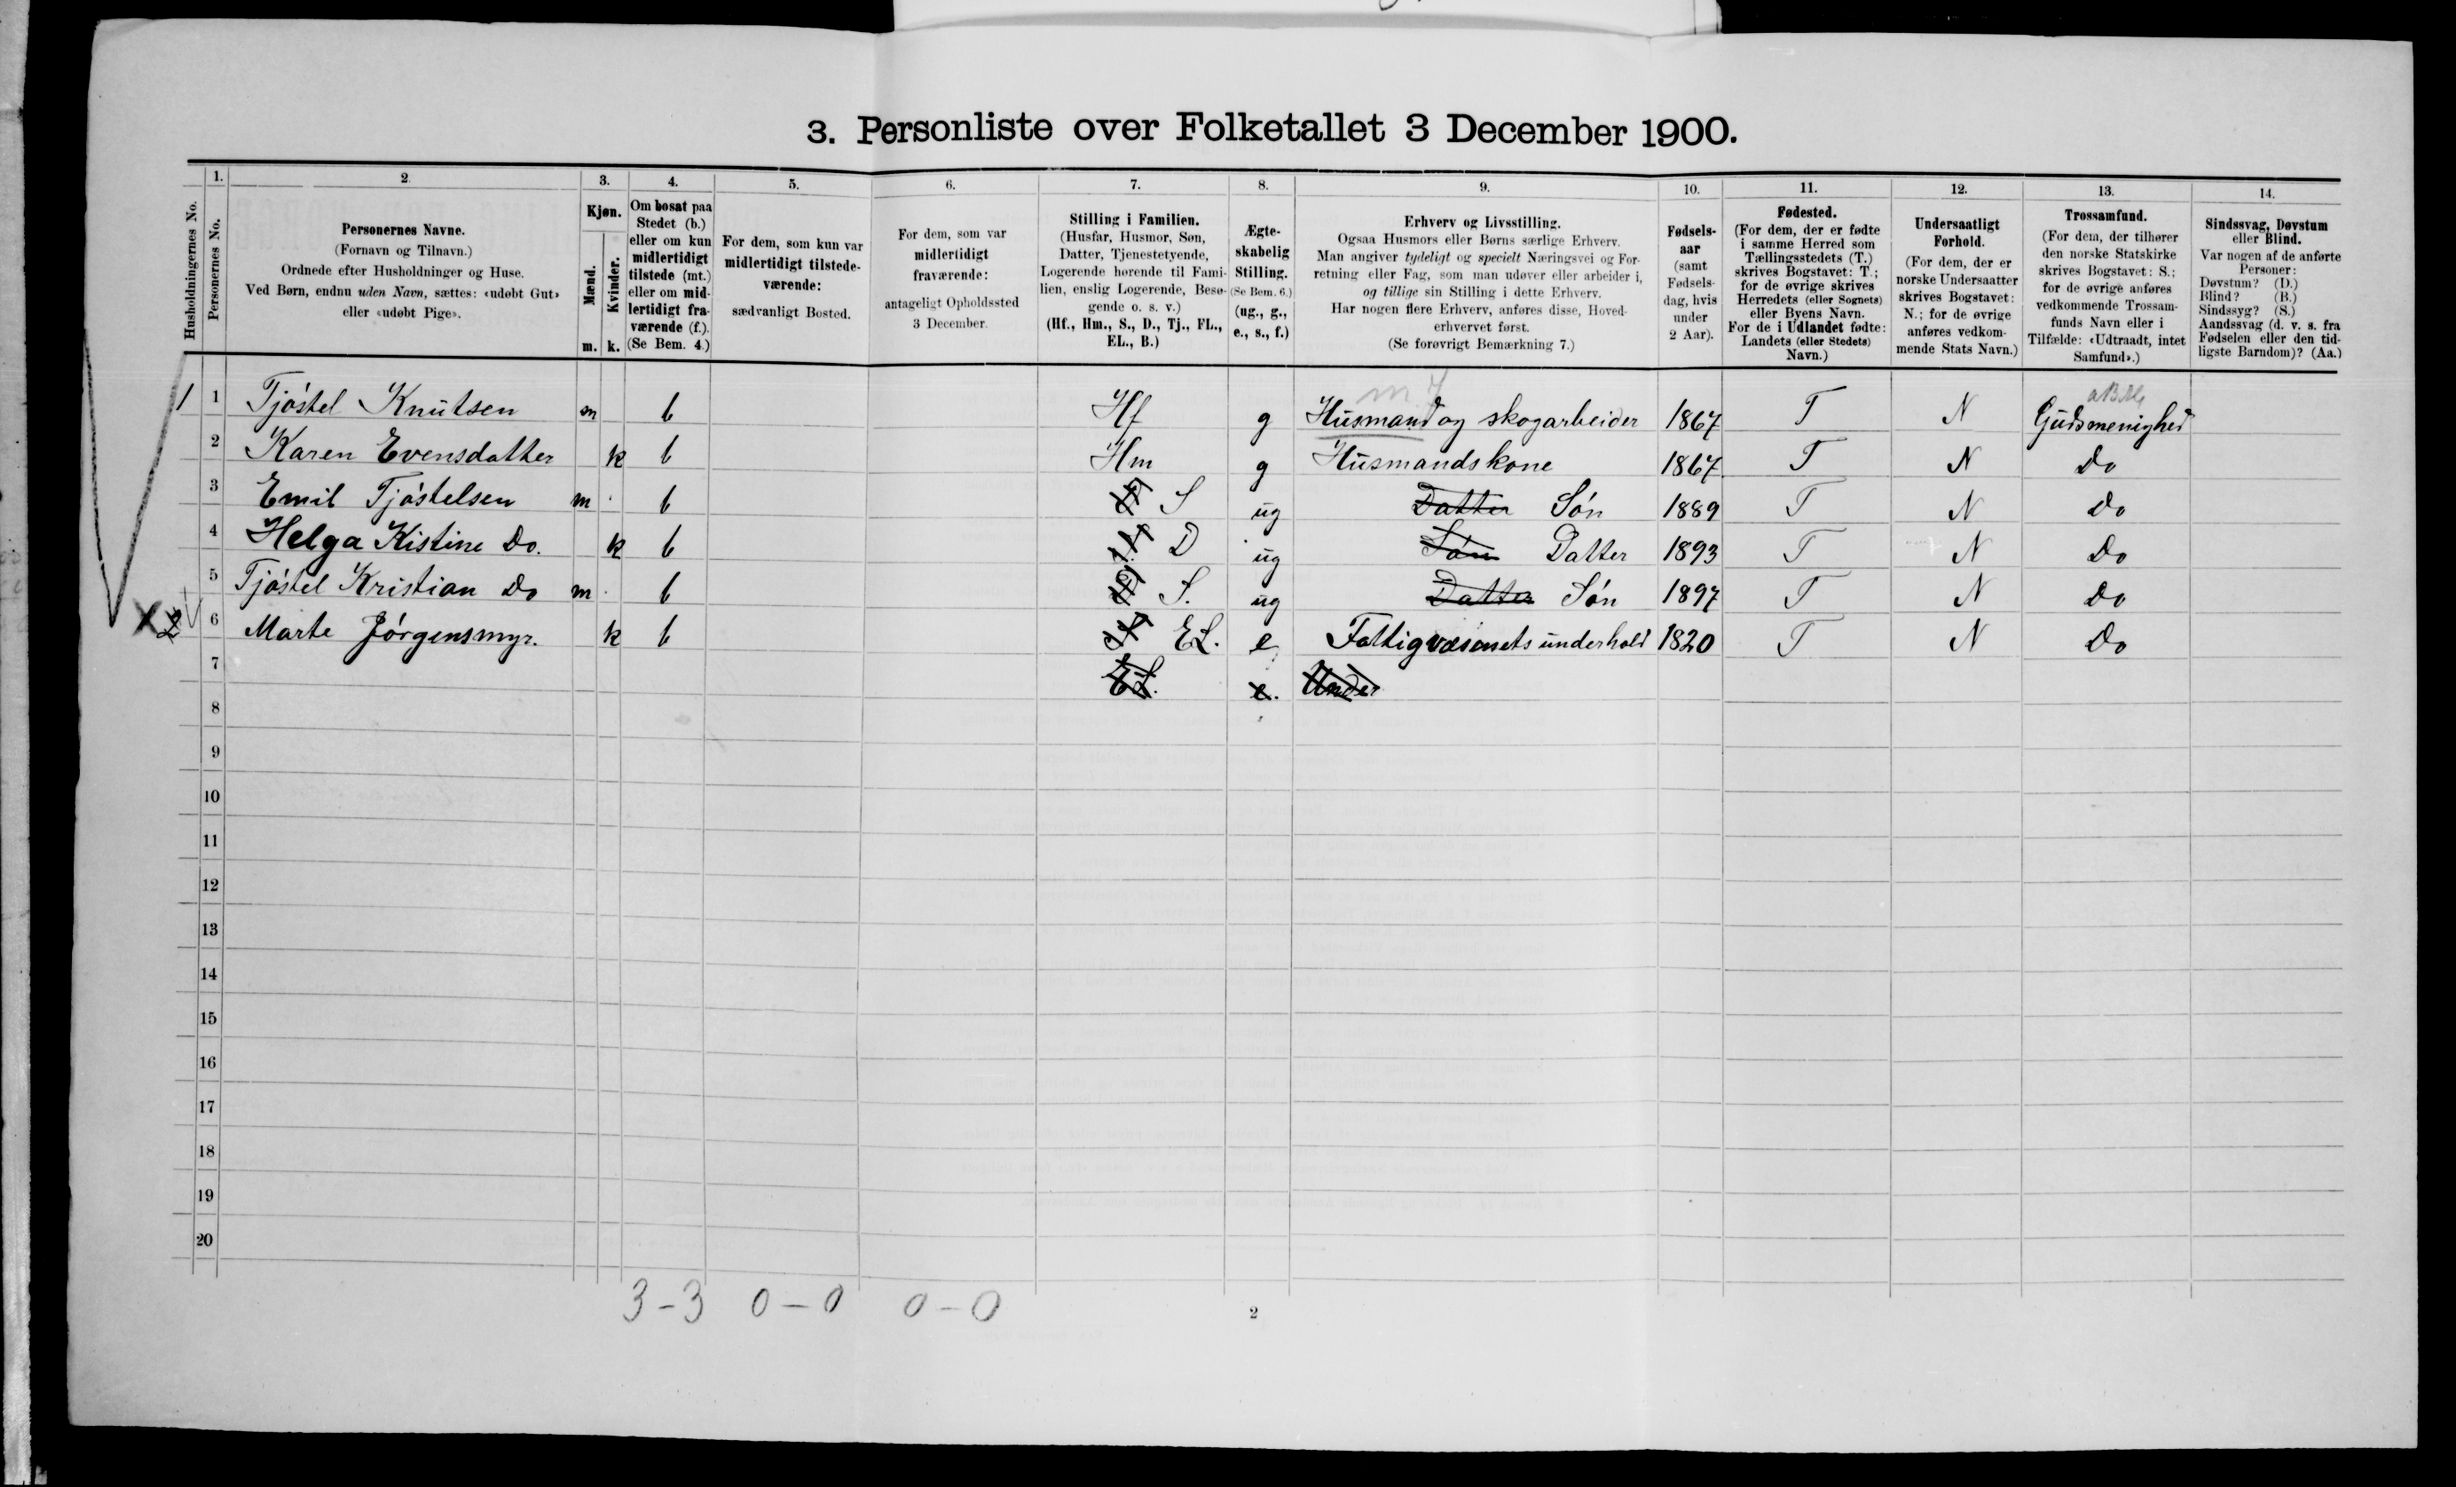 3. Personliste over Folketallet 3 December 1900.
1. 2. 3. 4. 5. 6. 7. 8. 9. 10. 11. 12. 13. 14.
Husholdningernes No.
Personernes No.
Personernes Navne.
(Fornavn og Tilnavn.)
Ordnede efter Husholdninger og Huse.
Ved Børn, endnu uden Navn, sættes: «udøbt Gut»
eller «udøbt Pige».
Kjøn.
Mænd.
Kvinder.
m. k.
Om bosat paa
Stedet (b.)
eller om kun
midlertidigt
tilstede (mt.)
eller om mid-
lertidigt fra-
værende (f.).
(Se Bem. 4.)
For dem, som kun var
midlertidigt tilstede-
værende:
sædvanligt Bosted.
For dem, som var
midlertidigt
fraværende:
antageligt Opholdssted
3 December.
Stilling i Familien.
(Husfar, Husmor, Søn,
Datter, Tjenestetyende,
Logerende hørende til Fami-
lien, enslig Logerende, Besø-
gende o. s. v.)
(Hf., Hm., S., D., Tj., FL.,
EL., B.)
Ægte-
skabelig
Stilling.
(Se Bem. 6.)
(ug., g.,
e., s., f.)
Erhverv og Livsstilling.
Ogsaa Husmors eller Børns særlige Erhverv.
Man angiver tydeligt og specielt Næringsvei og For-
retning eller Fag, som man udøver eller arbeider i,
og tillige sin Stilling i dette Erhverv.
Har nogen flere Erhverv, anføres disse, Hoved-
erhvervet først.
(Se forøvrigt Bemærkning 7.)
Fødsels-
aar
(samt
Fødsels-
dag, hvis
under
2 Aar).
Fødested.
(For dem, der er fødte
i samme Herred som
Tællingsstedets (T.)
skrives Bogstavet: T.;
for de øvrige skrives
Herredets (eller Sognets)
eller Byens Navn.
For de i Udlandet fødte:
Landets (eller Stedets)
Navn.)
Undersaatligt
Forhold.
(For dem, der er
norske Undersaatter
skrives Bogstavet:
N.; for de øvrige
anføres vedkom-
mende Stats Navn.)
Trossamfund.
(For dem, der tilhører
den norske Statskirke
skrives Bogstavet: S.;
for de øvrige anføres
vedkommende Trossam-
funds Navn eller i
Tilfælde: «Udtraadt, intet
Samfund».)
Sindssvag, Døvstum
eller Blind.
Var nogen af de anførte
Personer:
Døvstum? (D.)
Blind? (B.)
Sindssyg? (S.)
Aandssvag (d. v. s. fra
Fødselen eller den tid-
ligste Barndom)? (Aa.)
1 1 Tjøstel Knutsen m b Hf g Husmand og skogarbeider 1867 T N Gudsmenighed
2 Karen Evensdatter k b Hm g Husmandskone 1867 T N Do
3 Emil Tjøstelsen m b S ug Datter Søn 1889 T N Do
4 Helga Kistine Do. k b D ug Søn Datter 1893 T N Do
5 Tjøstel Kristian Do m b D S. ug Datter Søn 1897 T N Do
X 2 6 Marte Jørgensmyr. k b EL. e Fattigvæsenets underhold 1820 T N Do
7 EL. e. Under
8
9
10
11
12
13
14
15
16
17
18
19
20
3-3 0-0 0-0
2